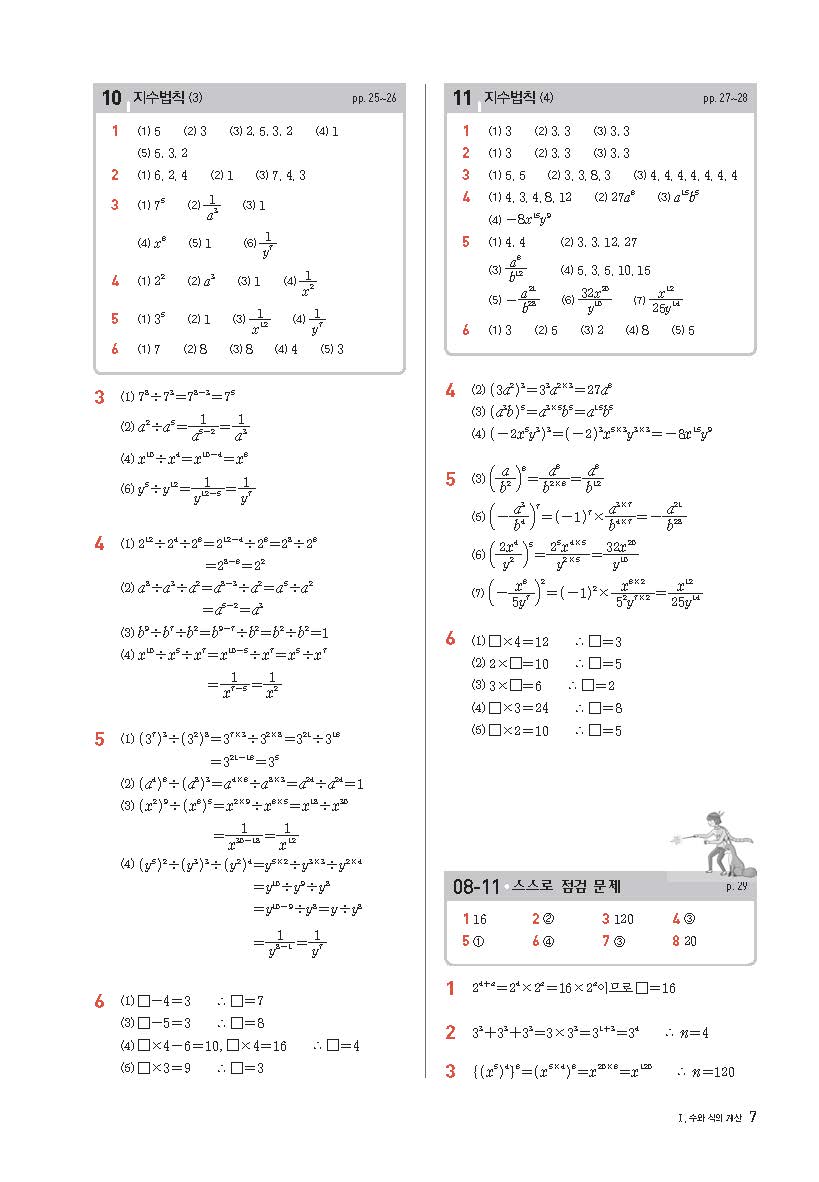 10 지수법칙 (3) pp. 25~26
1 (1) 5 (2) 3 (3) 2, 5, 3, 2 (4) 1
(5) 5, 3, 2
2 (1) 6, 2, 4 (2) 1 (3) 7, 4, 3
3 (1) 7⁵ (2) 1/a³ (3) 1
(4) x⁶ (5) 1 (6) 1/y⁷
4 (1) 2² (2) a³ (3) 1 (4) 1/x²
5 (1) 3⁵ (2) 1 (3) 1/x¹² (4) 1/y⁷
6 (1) 7 (2) 8 (3) 8 (4) 4 (5) 3
3 (1) 7⁸÷7³=7⁸⁻³=7⁵
(2) a²÷a⁵=1/a⁵⁻²=1/a³
(4) x¹⁰÷x⁴=x¹⁰⁻⁴=x⁶
(6) y⁵÷y¹²=1/y¹²⁻⁵=1/y⁷
4 (1) 2¹²÷2⁴÷2⁶=2¹²⁻⁴÷2⁶=2⁸÷2⁶
=2⁸⁻⁶=2²
(2) a⁸÷a³÷a²=a⁸⁻³÷a²=a⁵÷a²
=a⁵⁻²=a³
(3) b⁹÷b⁷÷b²=b⁹⁻⁷÷b²=b²÷b²=1
(4) x¹⁰÷x⁵÷x⁷=x¹⁰⁻⁵÷x⁷=x⁵÷x⁷
=1/x⁷⁻⁵=1/x²
5 (1) (3⁷)³÷(3²)⁸=3⁷ˣ³÷3²ˣ⁸=3²¹÷3¹⁶
=3²¹⁻¹⁶=3⁵
(2) (a⁴)⁶÷(a⁸)³=a⁴ˣ⁶÷a⁸ˣ³=a²⁴÷a²⁴=1
(3) (x²)⁹÷(x⁶)⁵=x²ˣ⁹÷x⁶ˣ⁵=x¹⁸÷x³⁰
=1/x³⁰⁻¹⁸=1/x¹²
(4) (y⁵)²÷(y³)³÷(y²)⁴=y⁵ˣ²÷y³ˣ³÷y²ˣ⁴
=y¹⁰÷y⁹÷y⁸
=y¹⁰⁻⁹÷y⁸=y÷y⁸
=1/y⁸⁻¹=1/y⁷
6 (1) □-4=3 ∴ □=7
(3) □-5=3 ∴ □=8
(4) □×4-6=10, □×4=16 ∴ □=4
(5) □×3=9 ∴ □=3
11 지수법칙 (4) pp. 27~28
1 (1) 3 (2) 3, 3 (3) 3, 3
2 (1) 3 (2) 3, 3 (3) 3, 3
3 (1) 5, 5 (2) 3, 3, 8, 3 (3) 4, 4, 4, 4, 4, 4, 4
4 (1) 4, 3, 4, 8, 12 (2) 27a⁶ (3) a¹⁵b⁵
(4) -8x¹⁵y⁹
5 (1) 4, 4 (2) 3, 3, 12, 27
(3) a⁶/b¹² (4) 5, 3, 5, 10, 15
(5) -a²¹/b²⁸ (6) 32x²⁰/y¹⁰ (7) x¹²/25y¹⁴
6 (1) 3 (2) 5 (3) 2 (4) 8 (5) 5
4 (2) (3a²)³=3³a²ˣ³=27a⁶
(3) (a³b)⁵=a³ˣ⁵b⁵=a¹⁵b⁵
(4) (-2x⁵y³)³=(-2)³x⁵ˣ³y³ˣ³=-8x¹⁵y⁹
5 (3) (a/b²)⁶=a⁶/b²ˣ⁶=a⁶/b¹²
(5) (-a³/b⁴)⁷=(-1)⁷×a³ˣ⁷/b⁴ˣ⁷=-a²¹/b²⁸
(6) (2x⁴/y²)⁵=2⁵x⁴ˣ⁵/y²ˣ⁵=32x²⁰/y¹⁰
(7) (-x⁶/5y⁷)²=(-1)²×x⁶ˣ²/5²y⁷ˣ²=x¹²/25y¹⁴
6 (1) □×4=12 ∴ □=3
(2) 2×□=10 ∴ □=5
(3) 3×□=6 ∴ □=2
(4) □×3=24 ∴ □=8
(5) □×2=10 ∴ □=5
08-11 · 스스로 점검 문제 p. 29
1 16 2 ② 3 120 4 ③
5 ① 6 ④ 7 ③ 8 20
1 2⁴⁺ᵃ=2⁴×2ᵃ=16×2ᵃ이므로 □=16
2 3³+3³+3³=3×3³=3¹⁺³=3⁴ ∴ n=4
3 {(x⁵)⁴}⁶=(x⁵ˣ⁴)⁶=x²⁰ˣ⁶=x¹²⁰ ∴ n=120
Ⅰ. 수와 식의 계산 7